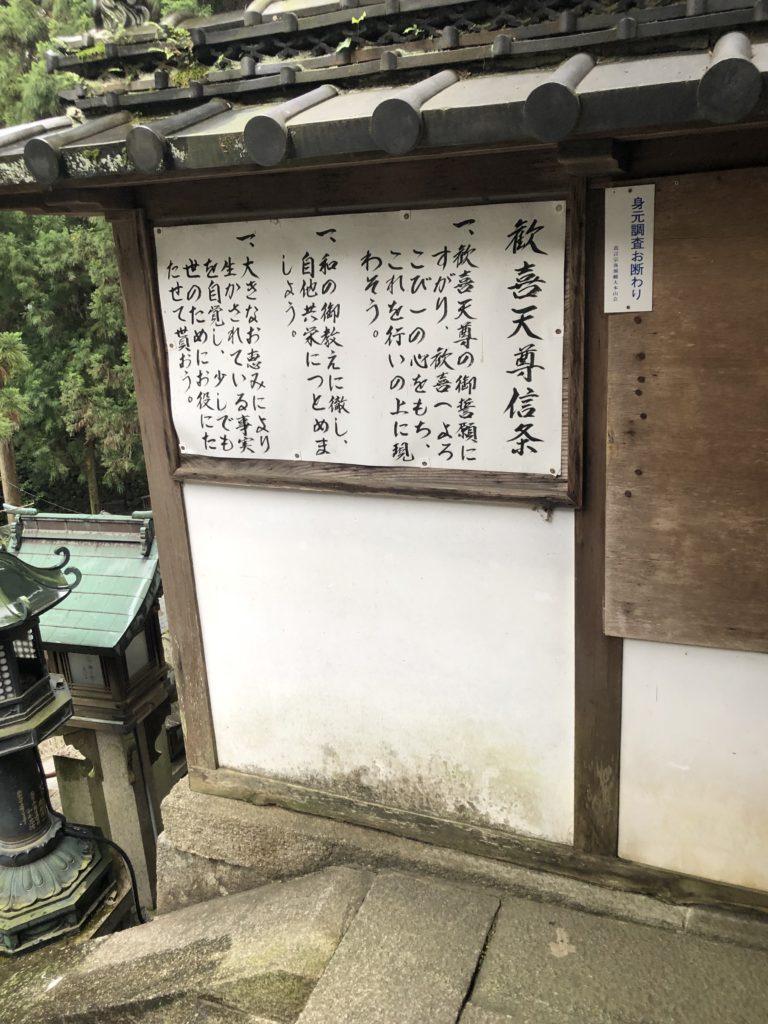 身元調査お断わり
歓喜天尊信条
一、歓喜天尊の御誓願に
すがり、歓喜へよろ
こび一の心をもち、
これを行いの上に現
わそう。
一、和の御教えに徹し、
自他共栄につとめま
しょう。
一、大きなお恵みにより
生かされている事実
を自覚し、少しでも
世のためにお役にた
たせて貰おう。